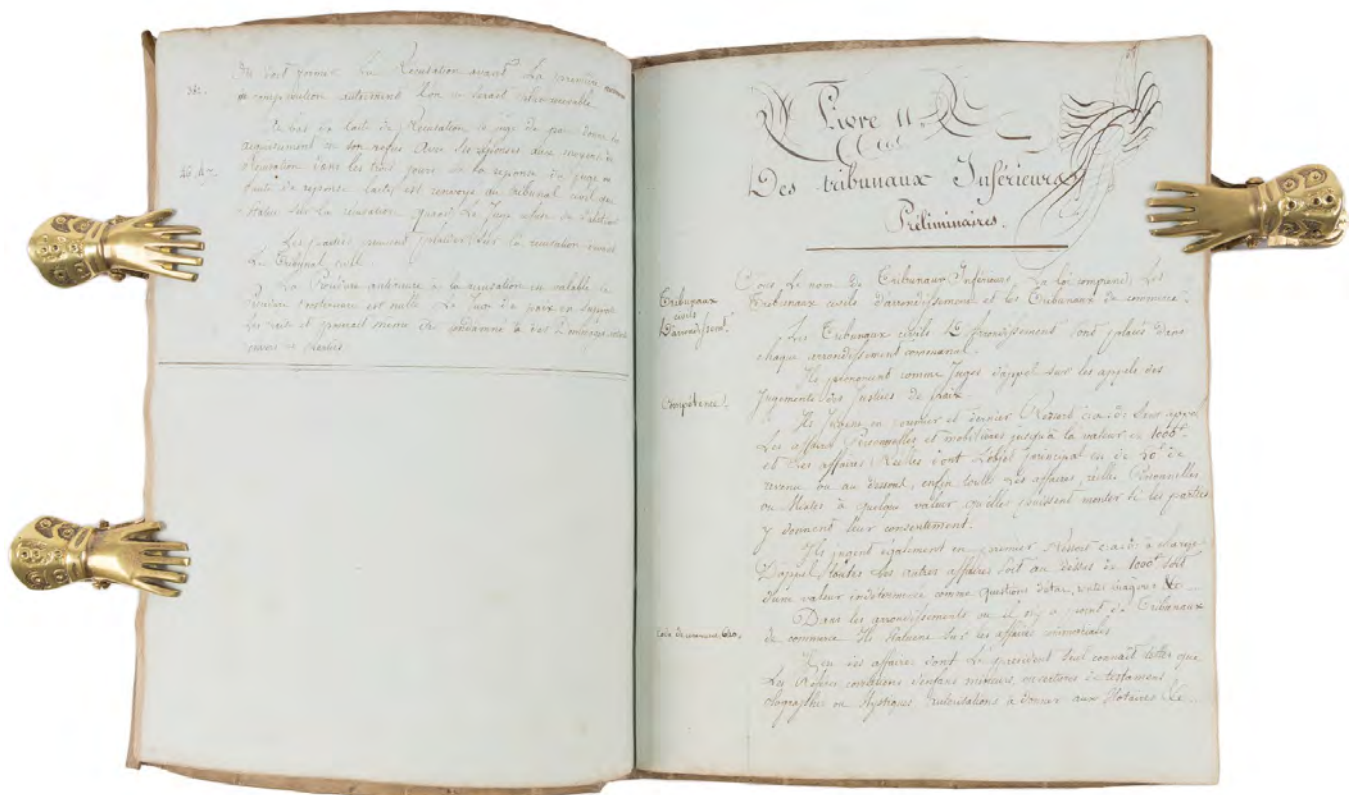 On doit former la Récusation avant la première
de comparution autrement l'on serait
Au bas de l'acte de Récusation le juge de paix donne
acquiescement ou son refus avec ses réponses aux moyens de
Récusation dans les trois jours de la réponse du juge ou
faute de réponse l'acte est renvoyé au tribunal civil
statue sur la récusation quand le Juge refuse de s'abstenir
Les parties peuvent plaider sur la récusation devant
Le Tribunal civil.
La Procédure antérieure à la récusation est valable la
Procédure est nulle. Le Juge de paix en
les frais et pourrait même être condamné à des Dommages
envers les Parties.
Livre II.
Des tribunaux Inférieurs
Préliminaires.
Tribunaux
civils
D'arrondissemt.
Sous le nom de Tribunaux Inférieurs La loi comprend Les
Tribunaux civils d'arrondissement et les Tribunaux de commerce.
Les Tribunaux civils D'arrondissement sont placés dans
chaque arrondissement communal.
Compétence.
Ils prononcent comme Juges d'appel sur les appels des
Jugements des Justices de paix.
Ils Jugent en premier et dernier Ressort c.a.d: sans appel
Les affaires Personnelles et mobilières jusqu'à la valeur de 1000f.
et les affaires Réelles dont l'objet principal est de 50f de
revenu ou au dessous, enfin toutes les affaires, réelles Personnelles
ou Mixtes à quelque valeur qu'elles puissent monter si les parties
y donnent leur consentement.
Ils jugent également en premier Ressort c.a.d: à charge
D'appel toutes les autres affaires soit au dessus de 1000f soit
d'une valeur indéterminée comme questions d'état, &c
Code de commerce 640.
Dans les arrondissements où il n'y a point de Tribunaux
de commerce Ils statuent sur les affaires commerciales
Il y a des affaires dont le président seul connaît telles que
Les Référés corrections d'enfans mineurs, ouvertures de testamens
olographes ou Mystiques autorisations à donner aux Notaires &c..